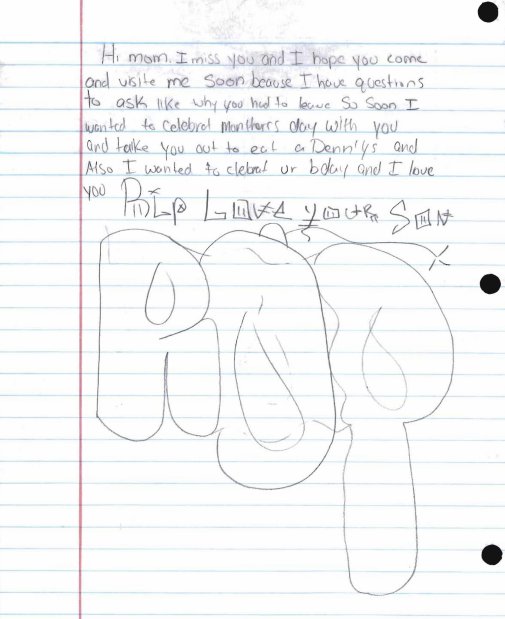 Hi mom. I miss you and I hope you come
and visite me soon beause I have questions
to ask like why you had to leave so soon I
wanted to celebrat monthers day with you
and take you out to eat a Denn'ys and
Also I wanted to clebrat ur bday and I love
you Rip Love your Son
RIP